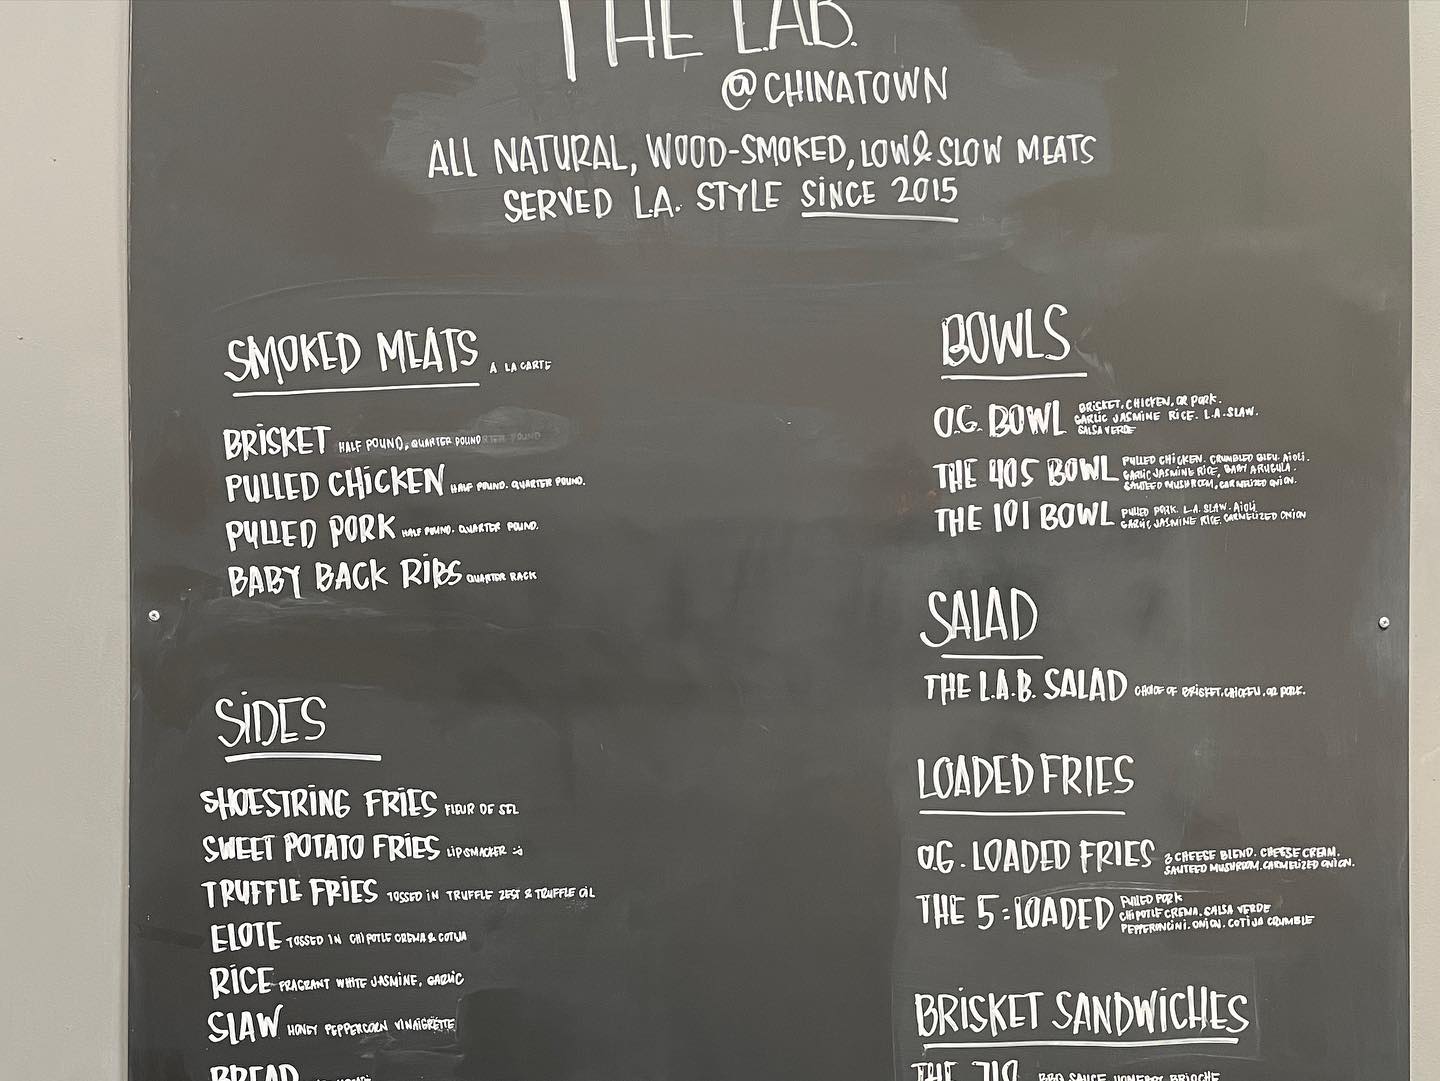 THE L.A.B.
@CHINATOWN
ALL NATURAL, WOOD-SMOKED, LOW & SLOW MEATS
SERVED L.A. STYLE SINCE 2015
SMOKED MEATS A LA CARTE
BRISKET HALF POUND, QUARTER POUND
PULLED CHICKEN HALF POUND. QUARTER POUND.
PULLED PORK HALF POUND. QUARTER POUND.
BABY BACK RIBS QUARTER RACK
SIDES
SHOESTRING FRIES FLEUR DE SEL
SWEET POTATO FRIES LIPSMACKER :)
TRUFFLE FRIES TOSSED IN TRUFFLE ZEST & TRUFFLE OIL
ELOTE TOSSED IN CHIPOTLE CREMA & COTIJA
RICE FRAGRANT WHITE JASMINE, GARLIC
SLAW HONEY PEPPERCORN VINAIGRETTE
BREAD
BOWLS
O.G. BOWL BRISKET, CHICKEN, OR PORK.
GARLIC JASMINE RICE. L.A. SLAW.
SALSA VERDE
THE 405 BOWL PULLED CHICKEN. CRUMBLED BLEU. AIOLI.
GARLIC JASMINE RICE, BABY ARUGULA.
SAUTEED MUSHROOM, CARMELIZED ONION.
THE 101 BOWL PULLED PORK. L.A. SLAW. AIOLI
GARLIC JASMINE RICE. CARMELIZED ONION
SALAD
THE L.A.B. SALAD CHOICE OF BRISKET, CHICKEN, OR PORK.
LOADED FRIES
O.G. LOADED FRIES 3 CHEESE BLEND. CHEESE CREAM.
SAUTEED MUSHROOM. CARMELIZED ONION.
THE 5:LOADED PULLED PORK
CHIPOTLE CREMA. SALSA VERDE
PEPPERONCINI. ONION. COTIJA CRUMBLE
BRISKET SANDWICHES
THE 710 BBQ SAUCE BRIOCHE